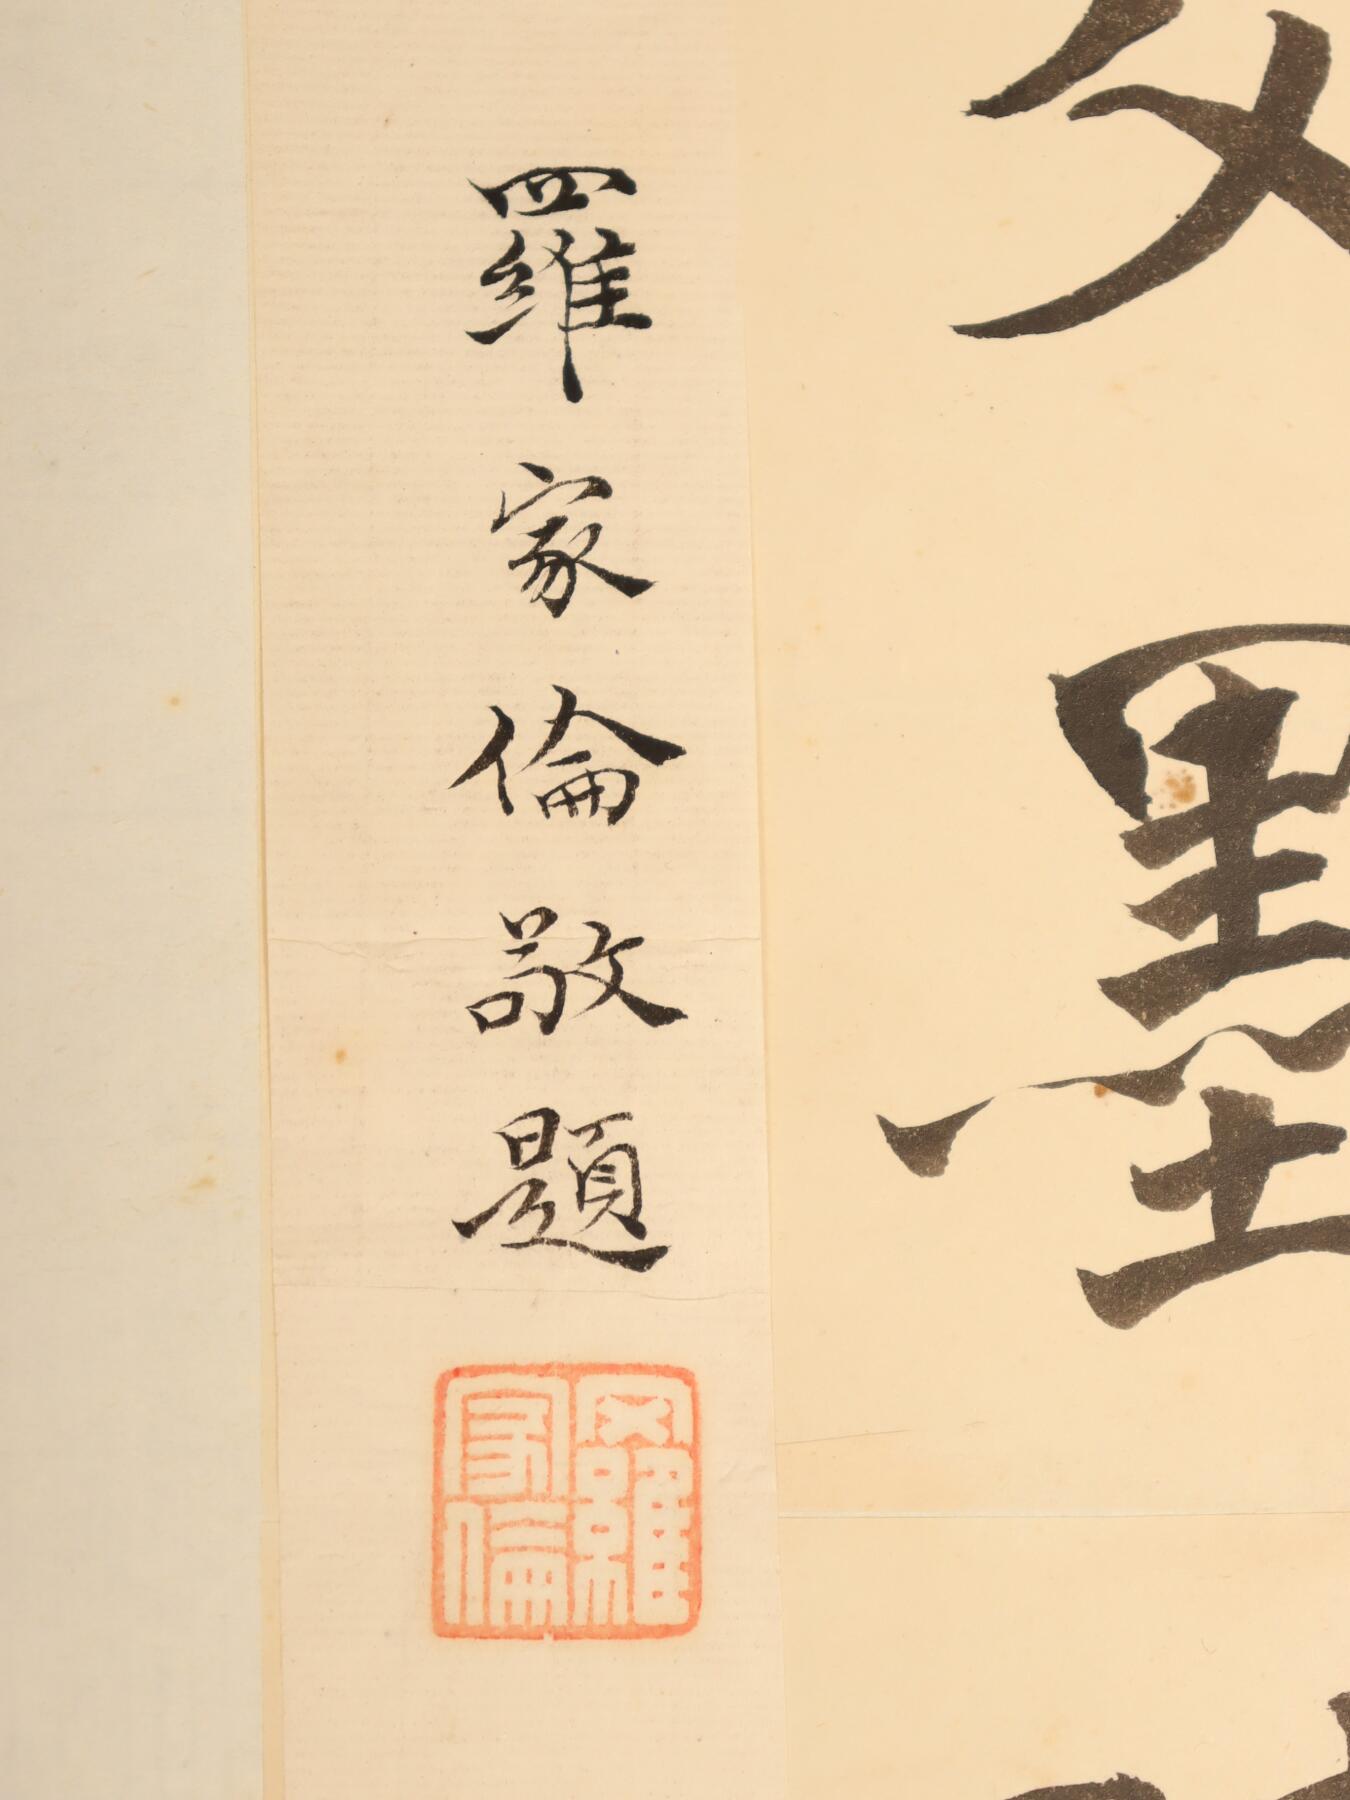 父墨
羅家倫敬題
羅家倫